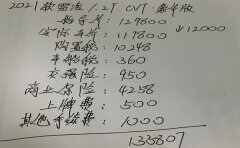 2021款雷凌 1.2T CVT 豪华版
指导价:129800
实际车价:117800 ↓12000
购置税:10248
车船税:360
交强险:950
商业保险:4258
上牌费:500
其他手续费:1000
133807